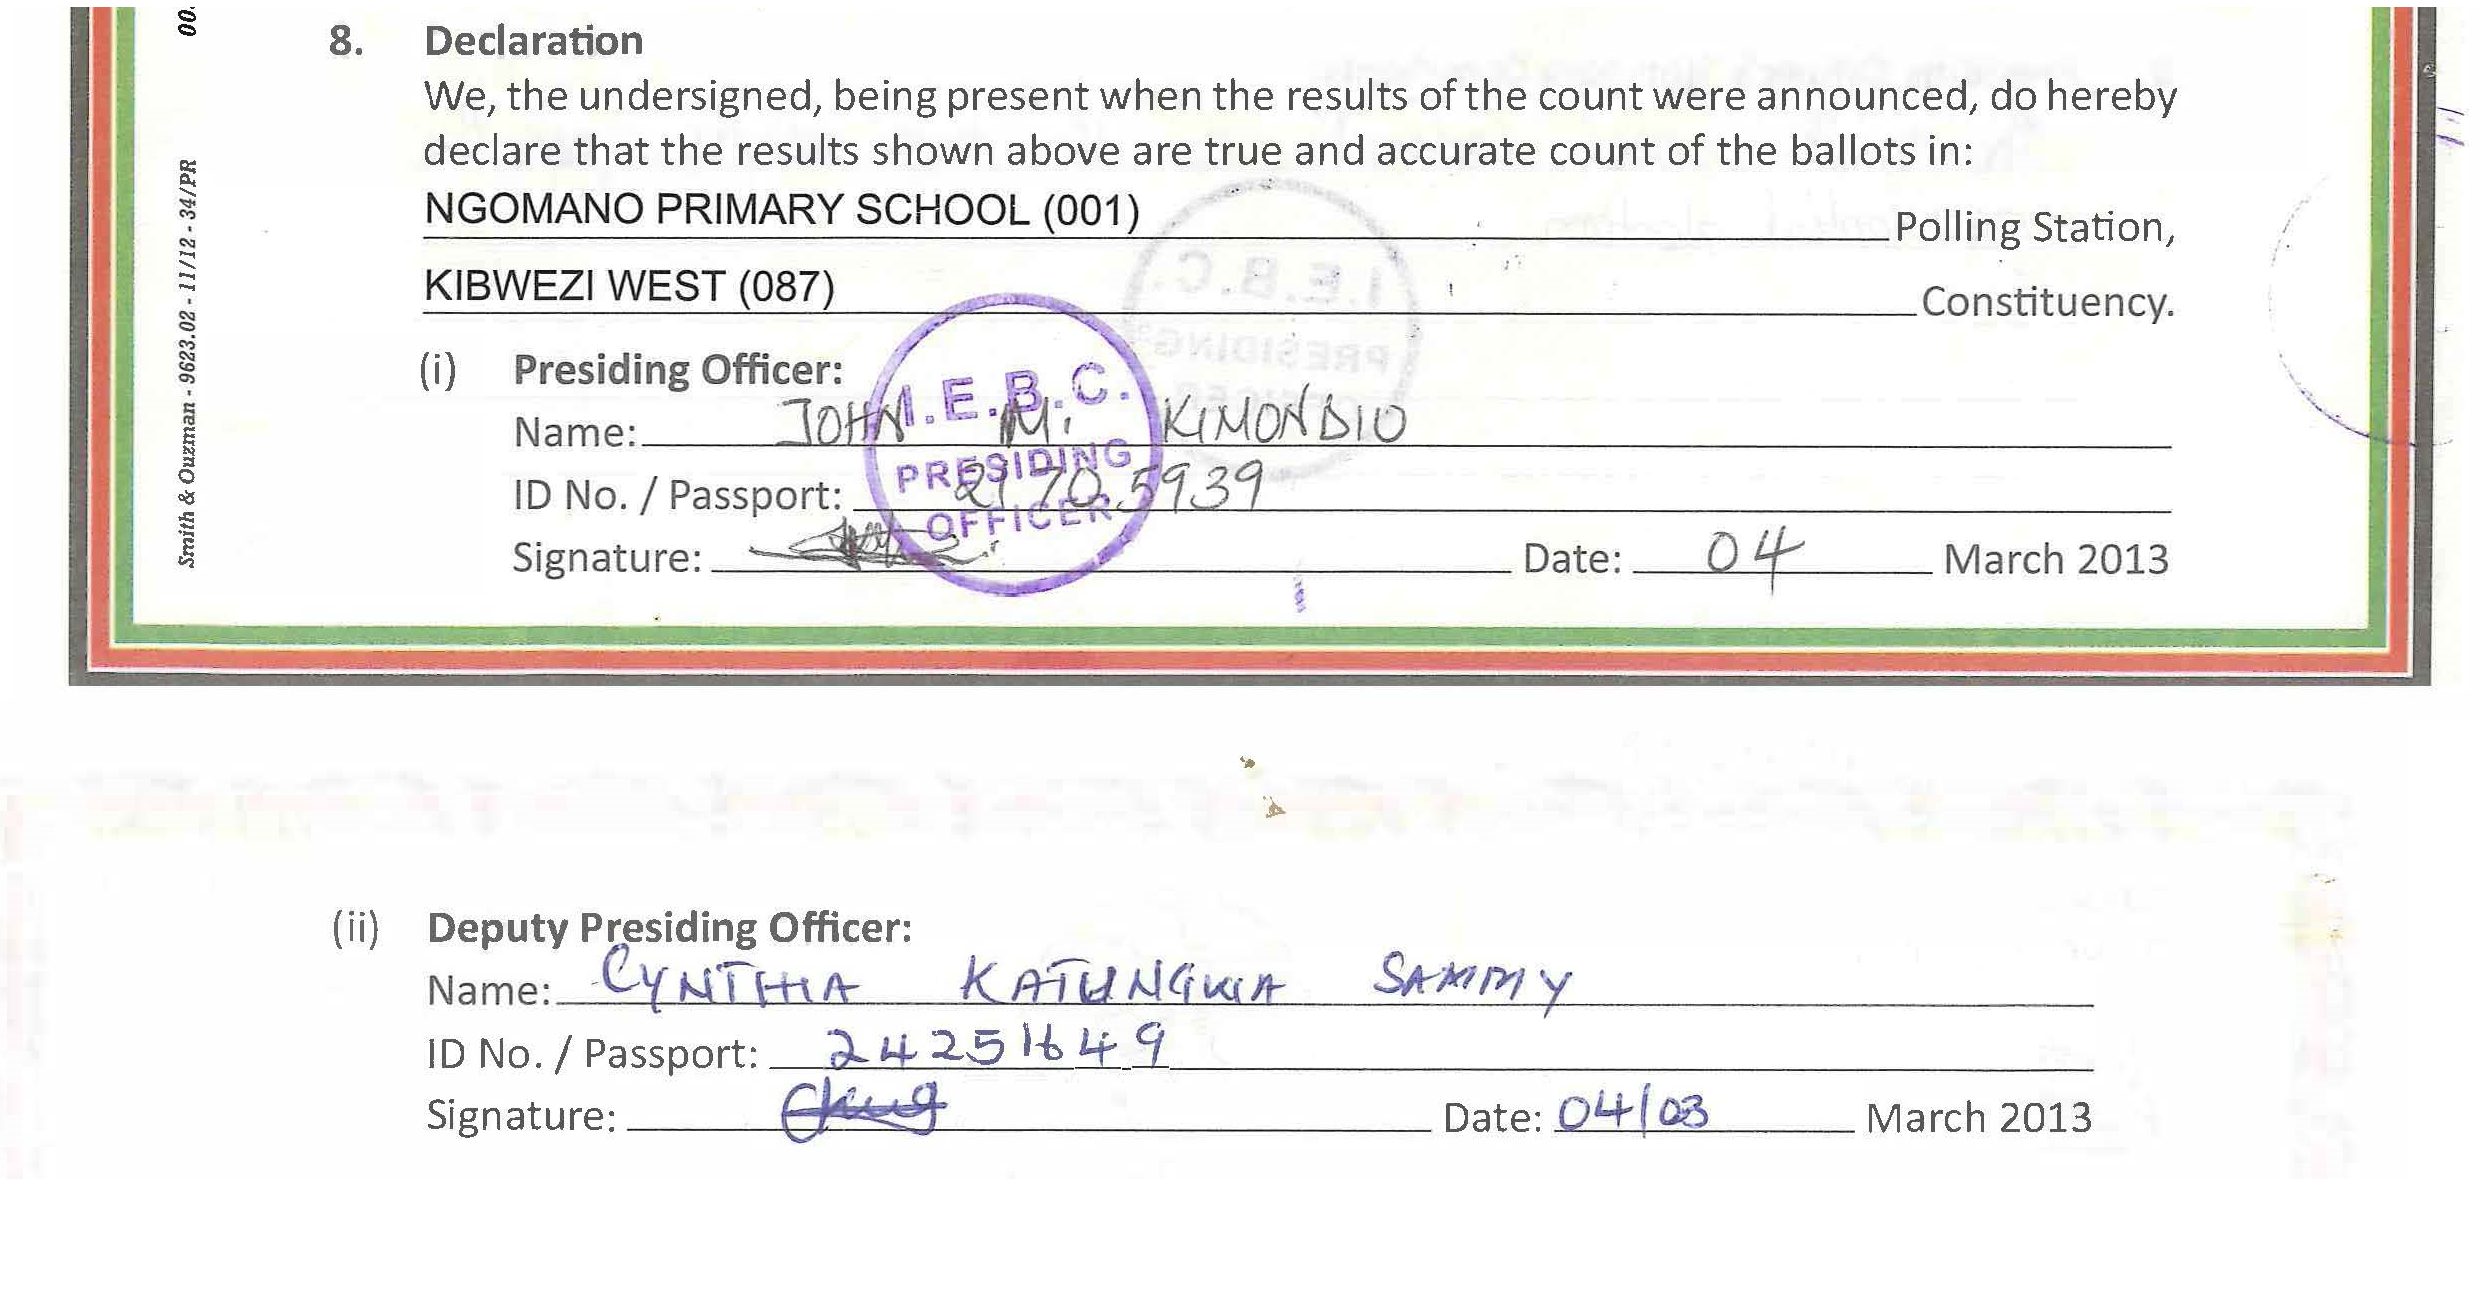 00.
Smith & Ouzman - 9623.02 - 11/12 - 34/PR
8. Declaration
We, the undersigned, being present when the results of the count were announced, do hereby
declare that the results shown above are true and accurate count of the ballots in:
NGOMANO PRIMARY SCHOOL (001) Polling Station,
KIBWEZI WEST (087) Constituency.
(i) Presiding Officer:
Name: JOHN M. KIMONDIU
I.E.B.C.
PRESIDING
OFFICER
ID No. / Passport: 21705939
Signature: Date: 04 March 2013
(ii) Deputy Presiding Officer:
Name: CYNTHIA KATUNGWA SAMMY
ID No. / Passport: 24251649
Signature: Date: 04/03 March 2013